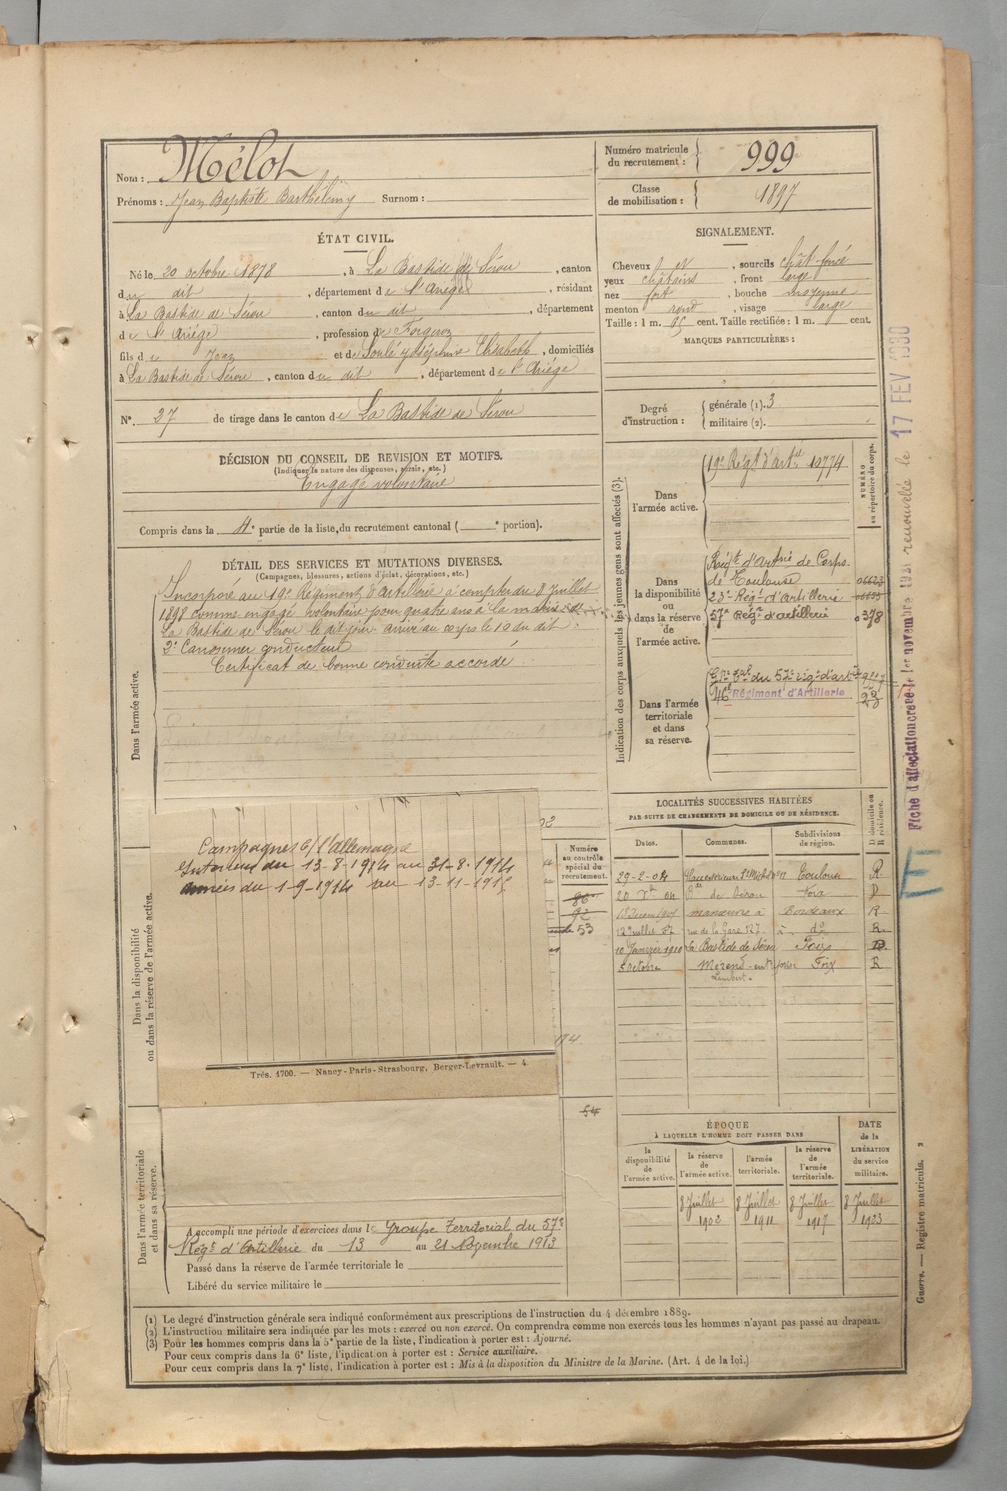 Nom : Mélot
Prénoms : Jean Baptiste Barthélemy Surnom :
Numéro matricule du recrutement : 999
Classe de mobilisation : 1897
ÉTAT CIVIL.
Né le 20 octobre 1878, à La Bastide de Sérou, canton
du dit, département de l'Ariège, résidant
à La Bastide de Sérou, canton du dit, département
de l'Ariège, profession de Forgeron
fils de Jean et de Soulé Joséphine Elisabeth, domiciliés
à La Bastide de Sérou, canton du dit, département de l'Ariège
N° 27 de tirage dans le canton de La Bastide de Sérou
SIGNALEMENT.
Cheveux et, sourcils chât-foncé
yeux châtains, front large
nez fort, bouche moyenne
menton rond, visage large
Taille : 1 m. cent. Taille rectifiée : 1 m. cent.
MARQUES PARTICULIÈRES :
Degré d'instruction : générale (1). 3
militaire (2).
DÉCISION DU CONSEIL DE REVISION ET MOTIFS.
(Indiquer la nature des dispenses, sursis, etc.)
Engagé volontaire
Compris dans la 4e partie de la liste du recrutement cantonal ( e portion).
DÉTAIL DES SERVICES ET MUTATIONS DIVERSES.
(Campagnes, blessures, actions d'éclat, décorations, etc.)
Dans l'armée active.
Incorporé au 19e Régiment d'artillerie à compter du 8 juillet
1898 comme engagé volontaire pour quatre ans à la mairie de
La Bastide de Sérou le dit jour arrivé au corps le 10 du dit.
2e Canonnier conducteur
Certificat de bonne conduite accordé
Dans la disponibilité ou dans la réserve de l'armée active.
Campagnes c/ l'allemagne
Intérieur du 13-8-1914 au 31-8-1914
Armées du 1-9-1914 au
Trés. 1700. — Nancy-Paris-Strasbourg, Berger-Levrault. — 4
Numéro au contrôle spécial du recrutement.
86
92
53
54
Dans l'armée territoriale et dans sa réserve.
A accompli une période d'exercices dans le Groupe Territorial du 57e
Régt d'Artillerie du 13 au 21 Novembre 1913
Passé dans la réserve de l'armée territoriale le
Libéré du service militaire le
Indication des corps auxquels les jeunes gens sont affectés (3).
NUMÉRO au répertoire du corps.
Dans l'armée active.
19e Régt d'artie 10774
Dans la disponibilité ou dans la réserve de l'armée active.
Régt d'artrie de Corps
de Toulouse
23e Régt d'Artillerie
57e Régt d'artillerie 0378
Dans l'armée territoriale et dans sa réserve.
Gpe Tal du 57e régt d'artie
46e Régiment d'Artillerie
LOCALITÉS SUCCESSIVES HABITÉES
PAR SUITE DE CHANGEMENTS DE DOMICILE OU DE RÉSIDENCE.
Dates. Communes. Subdivisions de région. D domicile ou R résidence.
29-2-04 Toulouse R
20 04 de Sérou Foix D
manœuvre à Bordeaux R
rue de la Gare 127 à do R.
10 Janvier 1910 La Bastide de Sérou Foix D.
5 octobre Foix R
ÉPOQUE
À LAQUELLE L'HOMME DOIT PASSER DANS
la disponibilité de l'armée active. la réserve de l'armée active. l'armée territoriale. la réserve de l'armée territoriale. DATE de la LIBÉRATION du service militaire.
8 Juillet 1902 8 Juillet 1911 8 Juillet 1917 8 Juillet 1923
(1) Le degré d'instruction générale sera indiqué conformément aux prescriptions de l'instruction du 4 décembre 1889.
(2) L'instruction militaire sera indiquée par les mots : exercé ou non exercé. On comprendra comme non exercés tous les hommes n'ayant pas passé au drapeau.
(3) Pour les hommes compris dans la 5e partie de la liste, l'indication à porter est : Ajourné.
Pour ceux compris dans la 6e liste, l'indication à porter est : Service auxiliaire.
Pour ceux compris dans la 7e liste, l'indication à porter est : Mis à la disposition du Ministre de la Marine. (Art. 4 de la loi.)
Guerre. — Registre matricule. 2
Fiche d'affectation créée le 1er novembre renouvelée le 17 FEV 1930
E